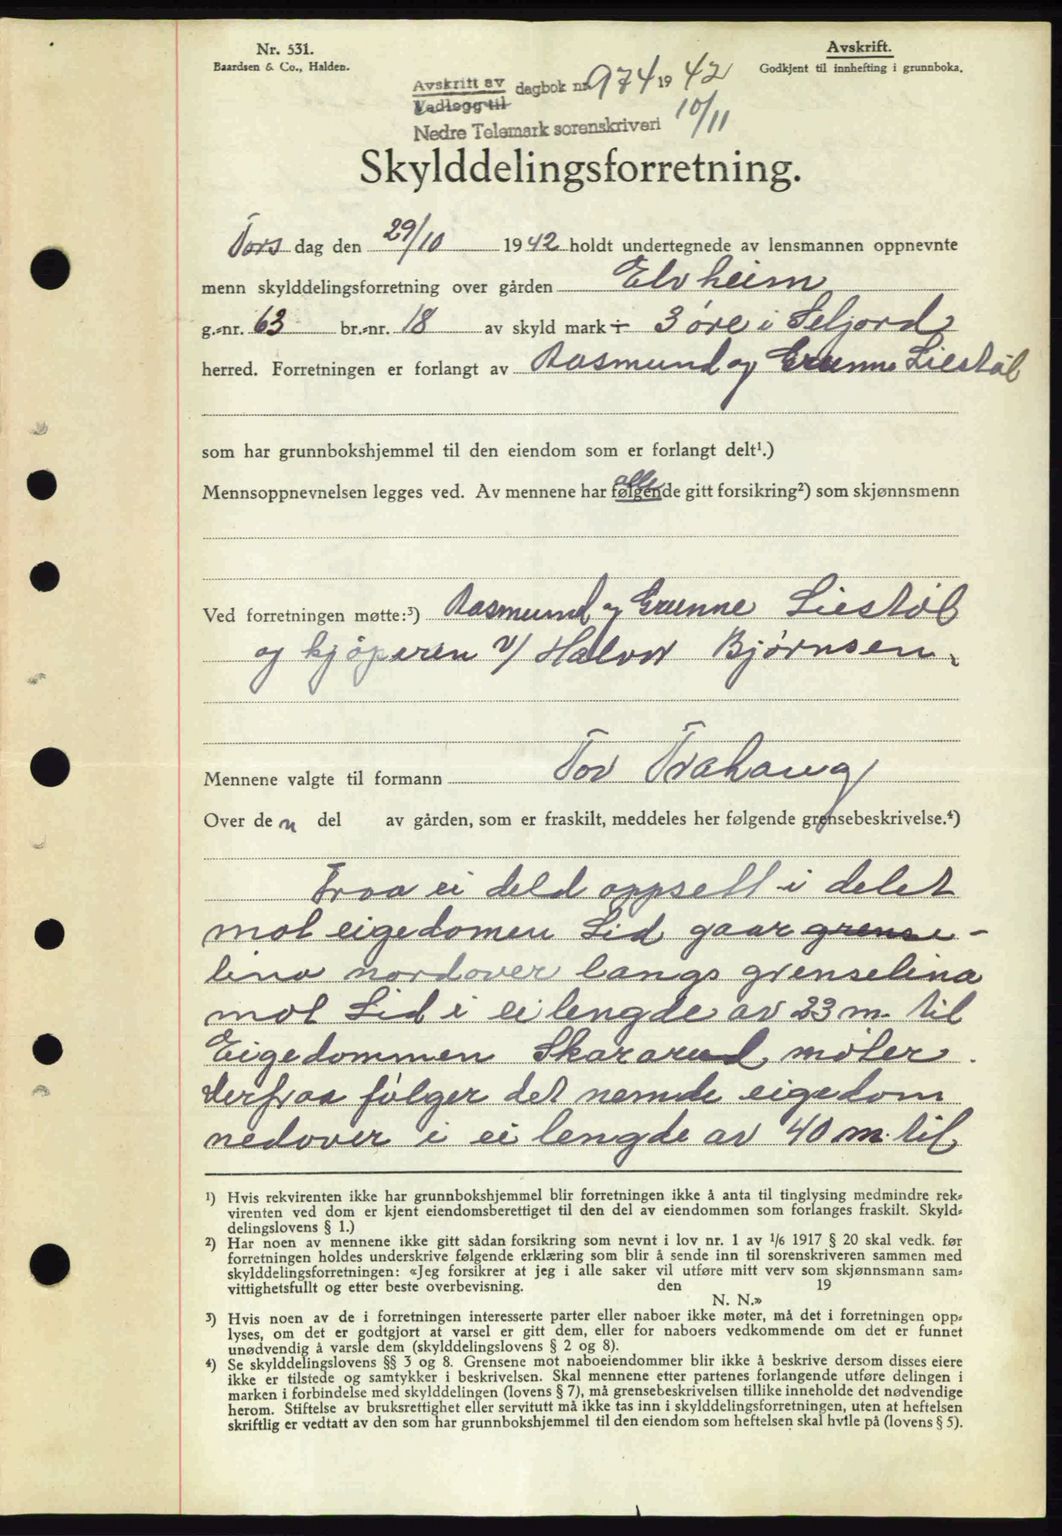 Nr. 531.
Baardsen & Co., Halden.
Avskrift.
Godkjent til innhefting i grunnboka.
Avskritt av
Vedlegg til
dagbok nr. 974 1942
Nedre Telemark sorenskriveri 10/11
Skylddelingsforretning.
Tors dag den 29/10 1942 holdt undertegnede av lensmannen oppnevnte
menn skylddelingsforretning over gården Elvheim
g.-nr. 63 br.-nr. 18 av skyld mark ÷ 3 øre i Seljord
herred. Forretningen er forlangt av Rasmund og Grunne Liestøl
som har grunnbokshjemmel til den eiendom som er forlangt delt¹.)
alle
Mennsoppnevnelsen legges ved. Av mennene har følgende gitt forsikring²) som skjønnsmenn
Ved forretningen møtte:³) Rasmund og Grunne Liestøl
og kjøperen v/ Halvor Bjørnsen.
Mennene valgte til formann Tov Trahaug
Over den del av gården, som er fraskilt, meddeles her følgende grensebeskrivelse.⁴)
Fraa ei deld oppsett i delet
mot eigedomen Lid gaar grense-
lina nordover langs grenselina
mot Lid i ei lengde av 23 m. til
Eigedommen Skararud møter.
derfraa følger det nemde eigedom
nedover i ei lengde av 40 m. til
¹) Hvis rekvirenten ikke har grunnbokshjemmel blir forretningen ikke å anta til tinglysing medmindre rek-
virenten ved dom er kjent eiendomsberettiget til den del av eiendommen som forlanges fraskilt. Skyld-
delingslovens § 1.)
²) Har noen av mennene ikke gitt sådan forsikring som nevnt i lov nr. 1 av 1/6 1917 § 20 skal vedk. før
forretningen holdes underskrive følgende erklæring som blir å sende inn til sorenskriveren sammen med
skylddelingsforretningen: «Jeg forsikrer at jeg i alle saker vil utføre mitt verv som skjønnsmann sam-
vittighetsfullt og etter beste overbevisning. den 19
N. N.»
³) Hvis noen av de i forretningen interesserte parter eller naboer ikke møter, må det i forretningen opp-
lyses, om det er godtgjort at varsel er gitt dem, eller for naboers vedkommende om det er funnet
unødvendig å varsle dem (skylddelingslovens § 2 og 8).
⁴) Se skylddelingslovens §§ 3 og 8. Grensene mot naboeiendommer blir ikke å beskrive dersom disses eiere
ikke er tilstede og samtykker i beskrivelsen. Skal mennene etter partenes forlangende utføre delingen i
marken i forbindelse med skylddelingen (lovens § 7), må grensebeskrivelsen tillike inneholde det nødvendige
herom. Stiftelse av bruksrettighet eller servitutt må ikke tas inn i skylddelingsforretningen, uten at heftelsen
skriftlig er vedtatt av den som har grunnbokshjemmel til den eiendom som heftelsen skal hvile på (lovens § 5).